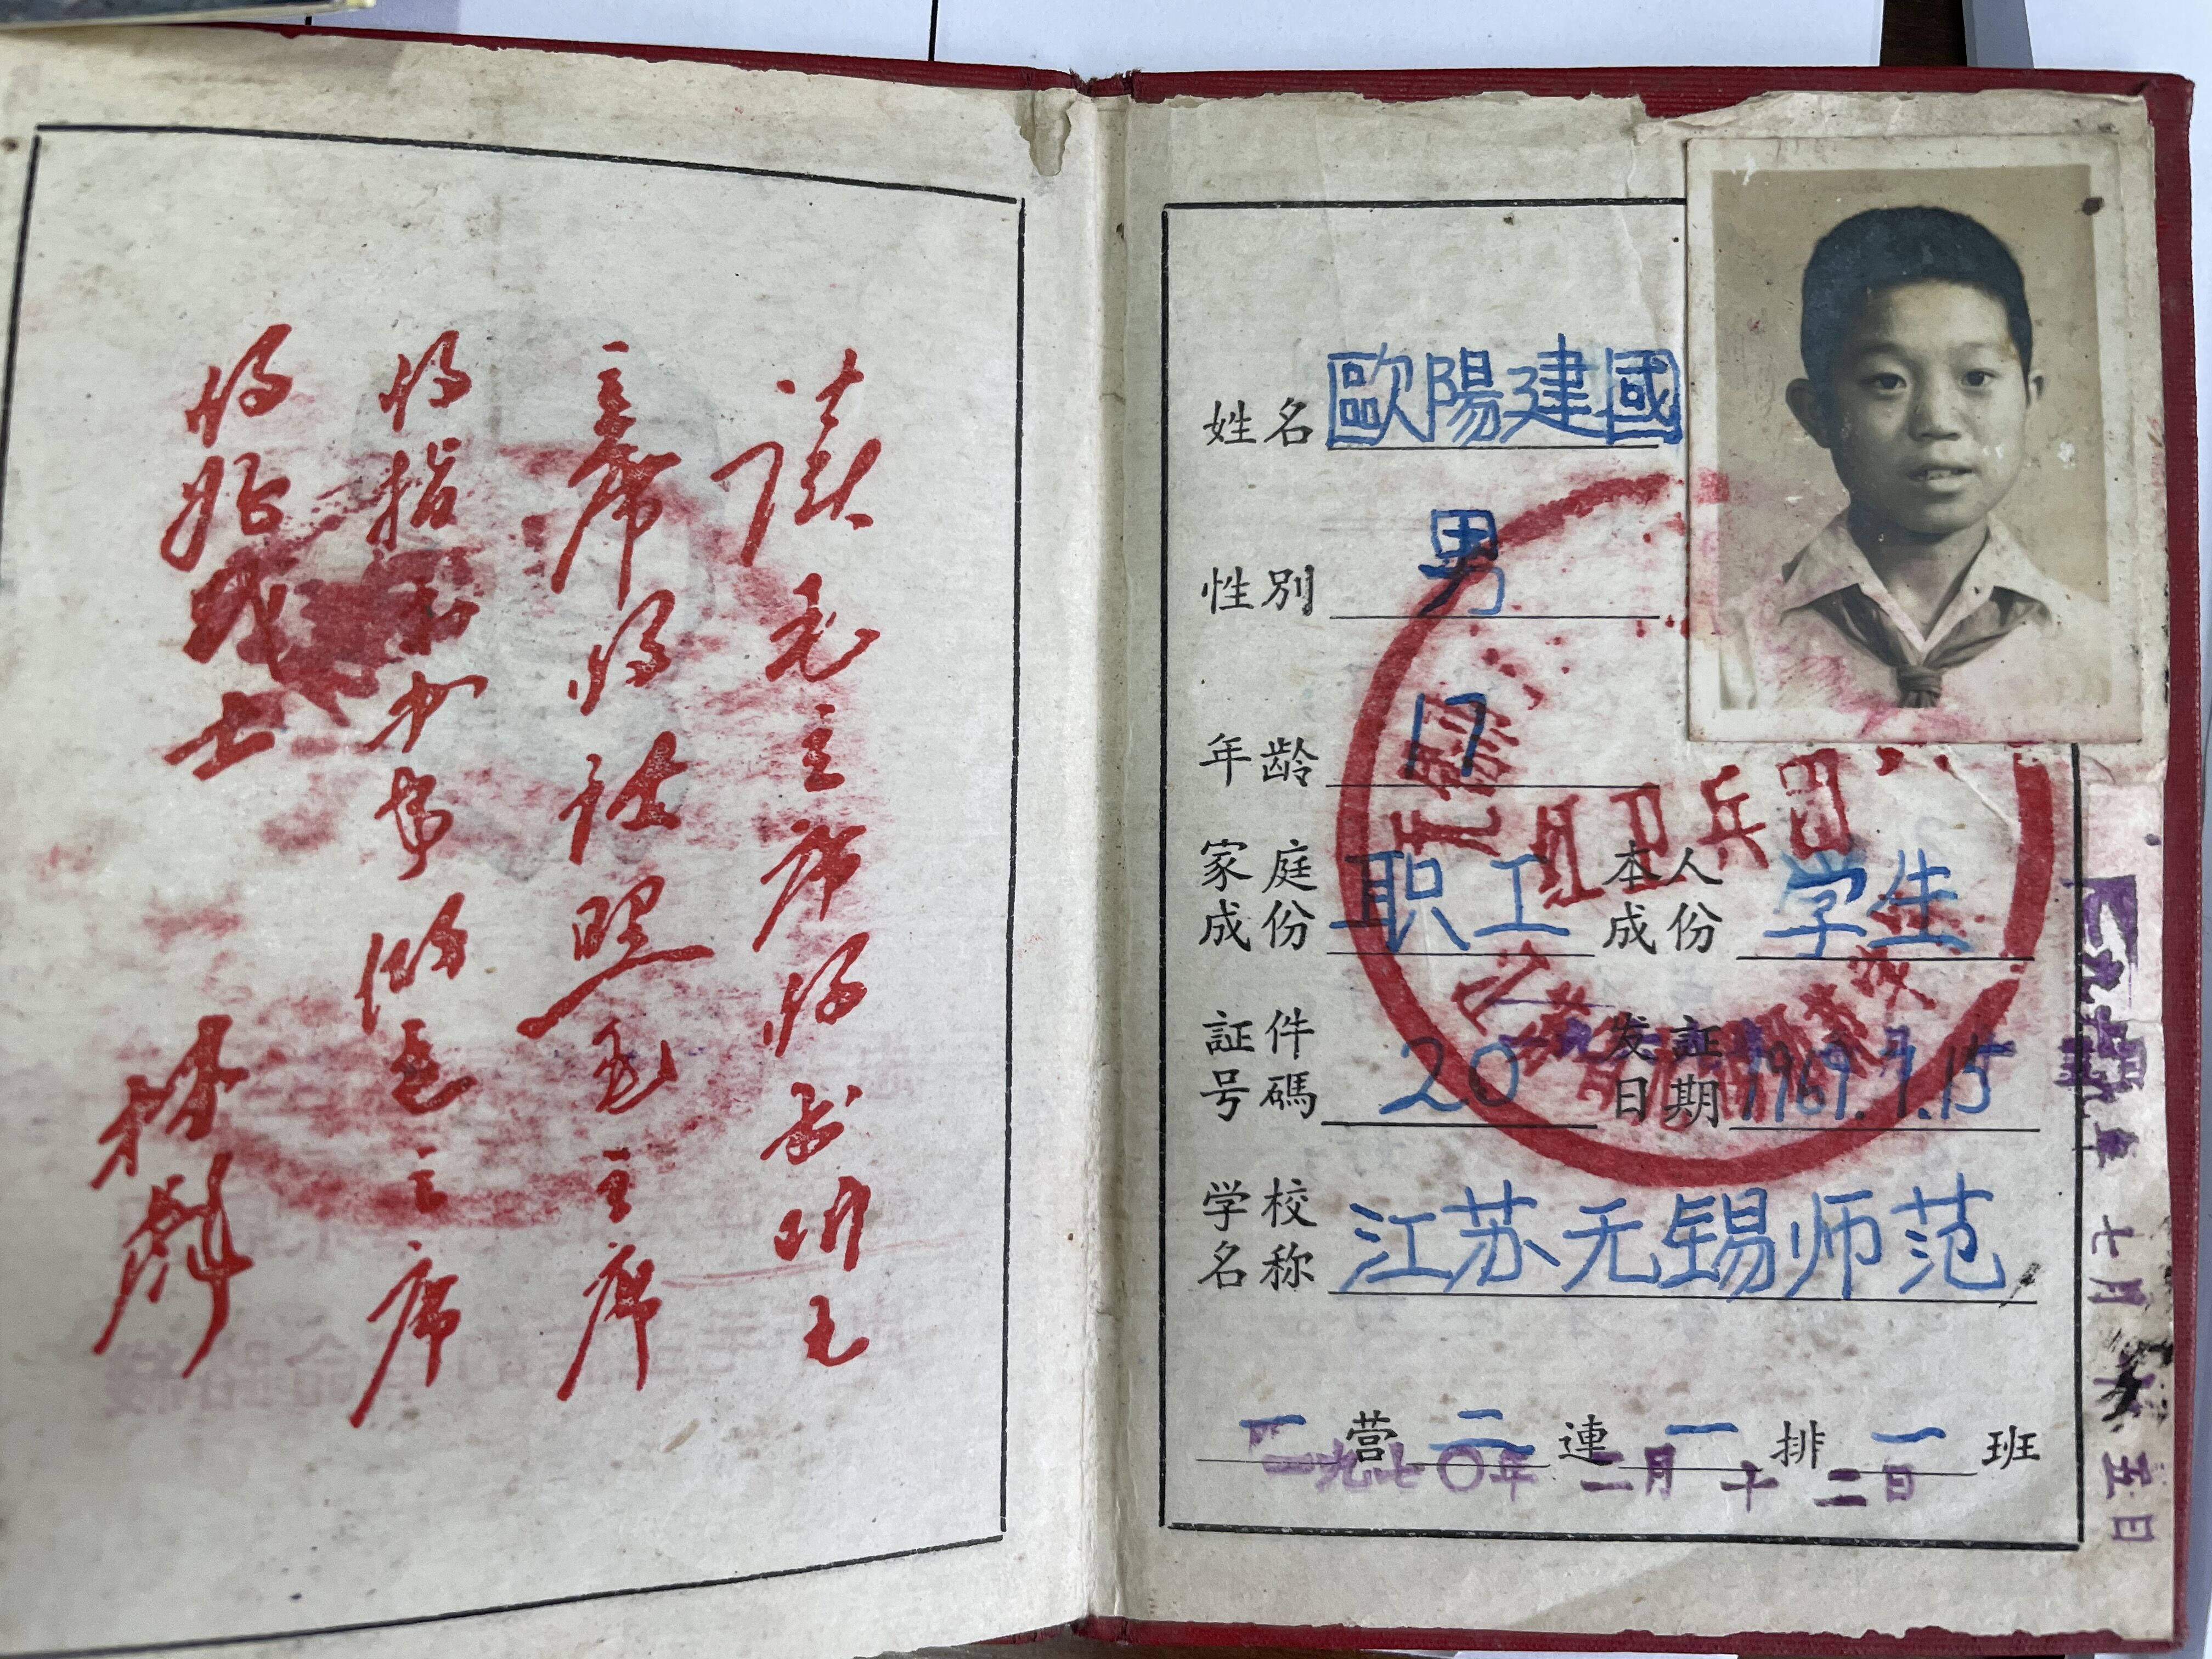 读毛主席的书听毛
主席的话照毛主席
的指示办事做毛主席
的好战士
林彪
姓名 歐陽建國
性别 男
年龄 17
家庭成份 职工 本人成份 学生
証件号碼 20 发証日期 1969.7.15
学校名称 江苏无锡师范
一营二連一排一班
一九七〇年二月十二日
红卫兵团
七月十五日